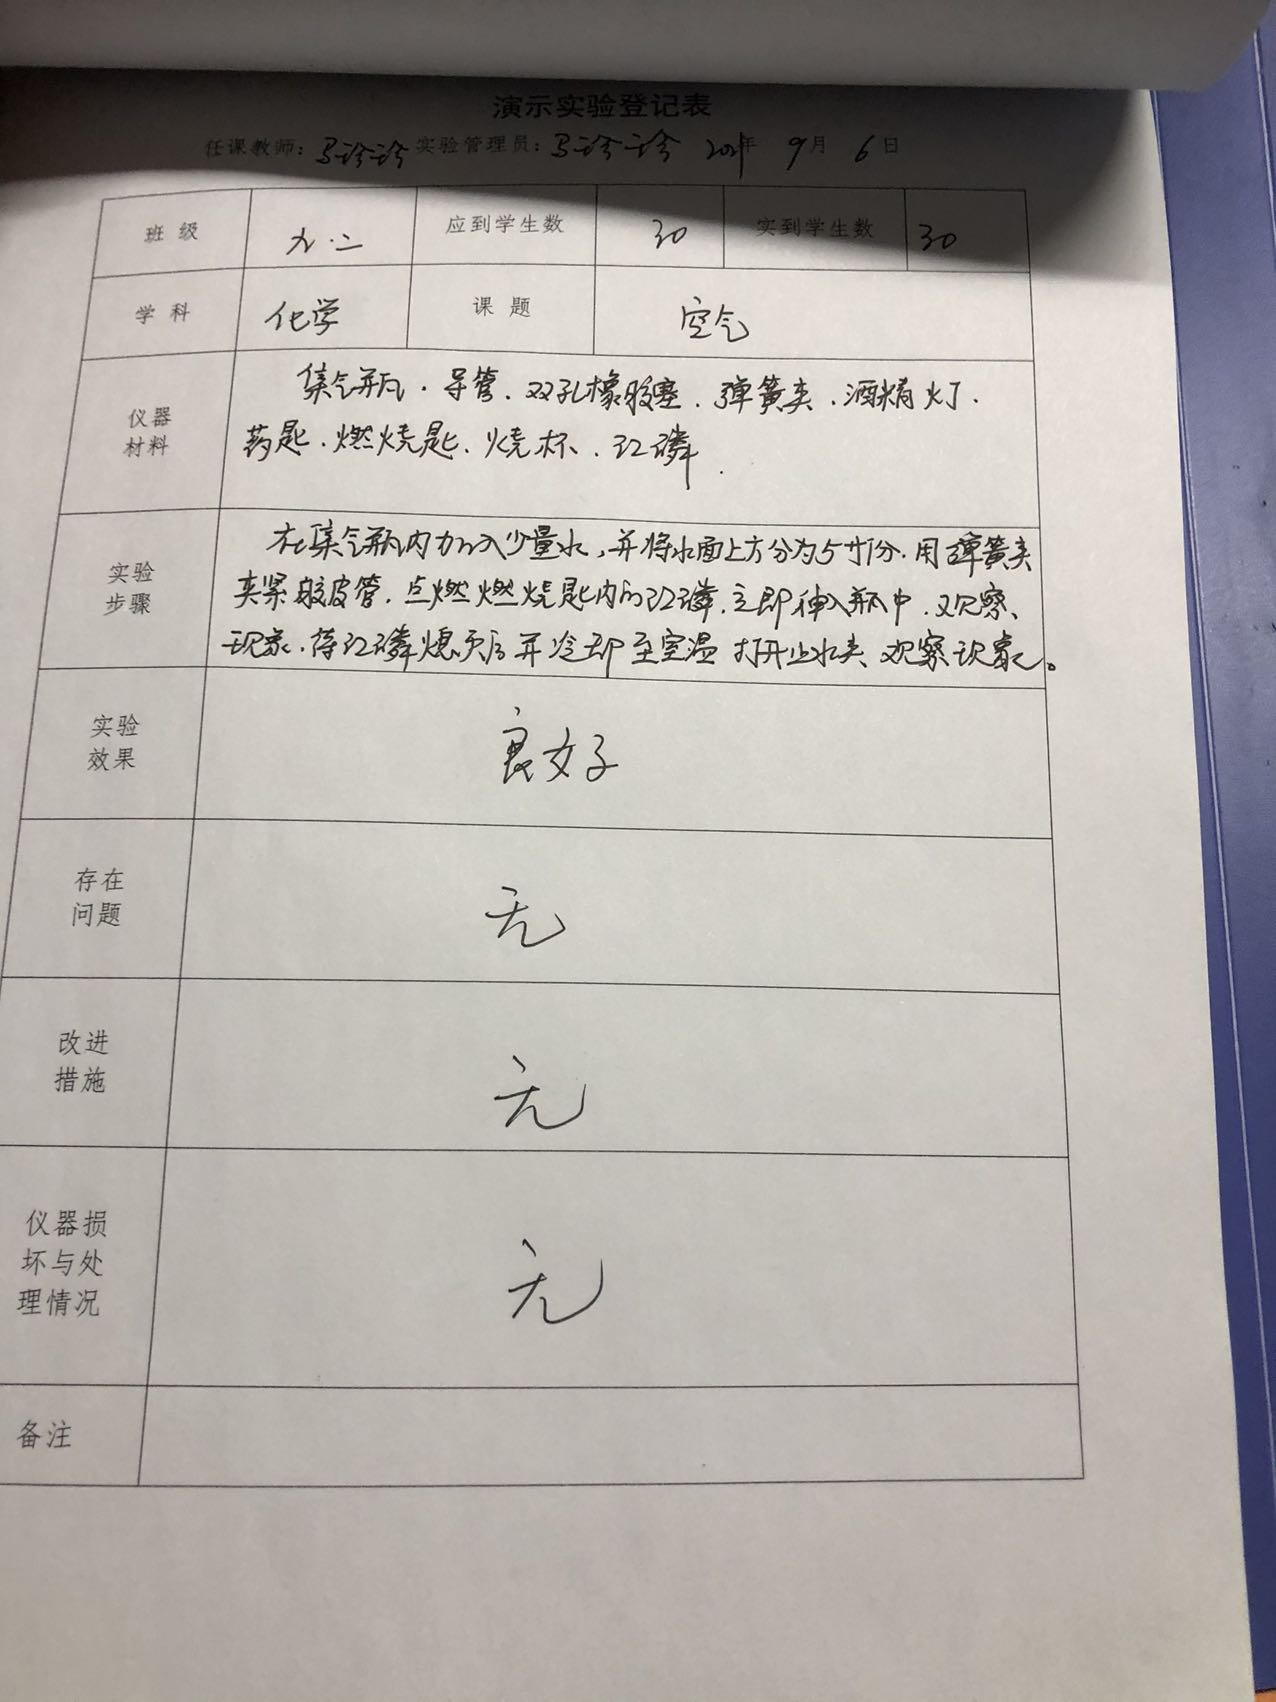 演示实验登记表
任课教师：马诊诊 实验管理员：马诊诊 2021年 9月 6日
班级 九.二 应到学生数 30 实到学生数 30
学科 化学 课题 空气
仪器材料
集气瓶.导管.双孔橡胶塞.弹簧夹.酒精灯.
药匙.燃烧匙.烧杯.红磷.
实验步骤
在集气瓶内加入少量水,并将水面上方分为5等份.用弹簧夹
夹紧胶皮管.点燃燃烧匙内的红磷.立即伸入瓶中.观察、
现象.待红磷熄灭后并冷却至室温 打开止水夹、观察现象。
实验效果
良好
存在问题
无
改进措施
无
仪器损坏与处理情况
无
备注